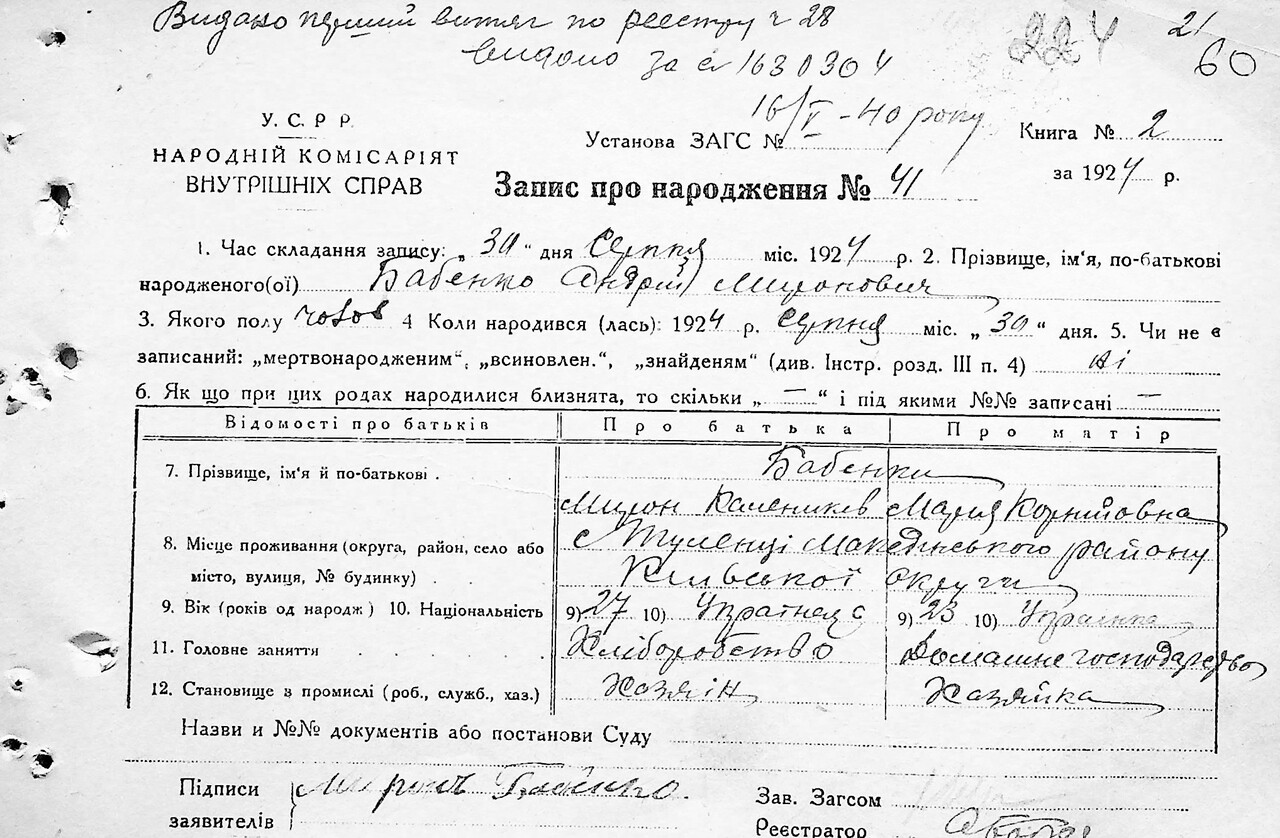 Видано перший витяг по реестру ч 28
видано за № 1630304
224
21
60
16/V - 40 року
У. С. Р Р.
НАРОДНІЙ КОМІСАРІЯТ
ВНУТРІШНІХ СПРАВ
Установа ЗАГС №
Книга № 2
за 1924 р.
Запис про народження № 41
1. Час складання запису: „30“ дня Серпня міс. 1924 р. 2. Прізвище, ім'я, по-батькові
народженого(ої) Бабенко Андрій Миронович
3. Якого полу чолов 4 Коли народився (лась): 1924 р. Серпня міс. „30“ дня. 5. Чи не є
записаний: „мертвонародженим“, „всиновлен.“, „знайденям“ (див. Інстр. розд. III п. 4) Ні
6. Як що при цих родах народилися близнята, то скільки „—“ і під якими №№ записані —
Відомості про батьків Про батька Про матір
7. Прізвище, ім'я й по-батькові . Бабенки
Мирон Калеників Мария Корніївна
8. Місце проживання (округа, район, село або с Туленці Макединського району
місто, вулиця, № будинку) . . Київської Округи
9. Вік (років од народж) 10. Національність 9) 27 10) Украінец 9) 23 10) Украінка
11. Головне заняття . . . . Хліборобство Домашне господарство
12. Становище в промислі (роб., служб., хаз.) Хазяін Хазяйка
Назви и №№ документів або постанови Суду
Підписи Миронъ Бабенко.
заявителів
Зав. Загсом
Реєстратор